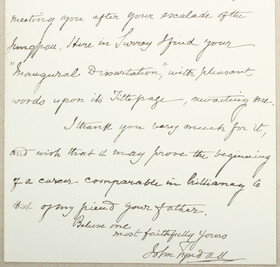 meeting you after your escalade of the
Here in Surrey I find your
"Inaugural Dissertation," with pleasant
words upon its Titlepage, awaiting me.
I thank you very much for it,
and wish that it may prove the beginning
of a career comparable in brilliancy to
that of my friend your father.
Believe me
most faithfully yours
John Tyndall